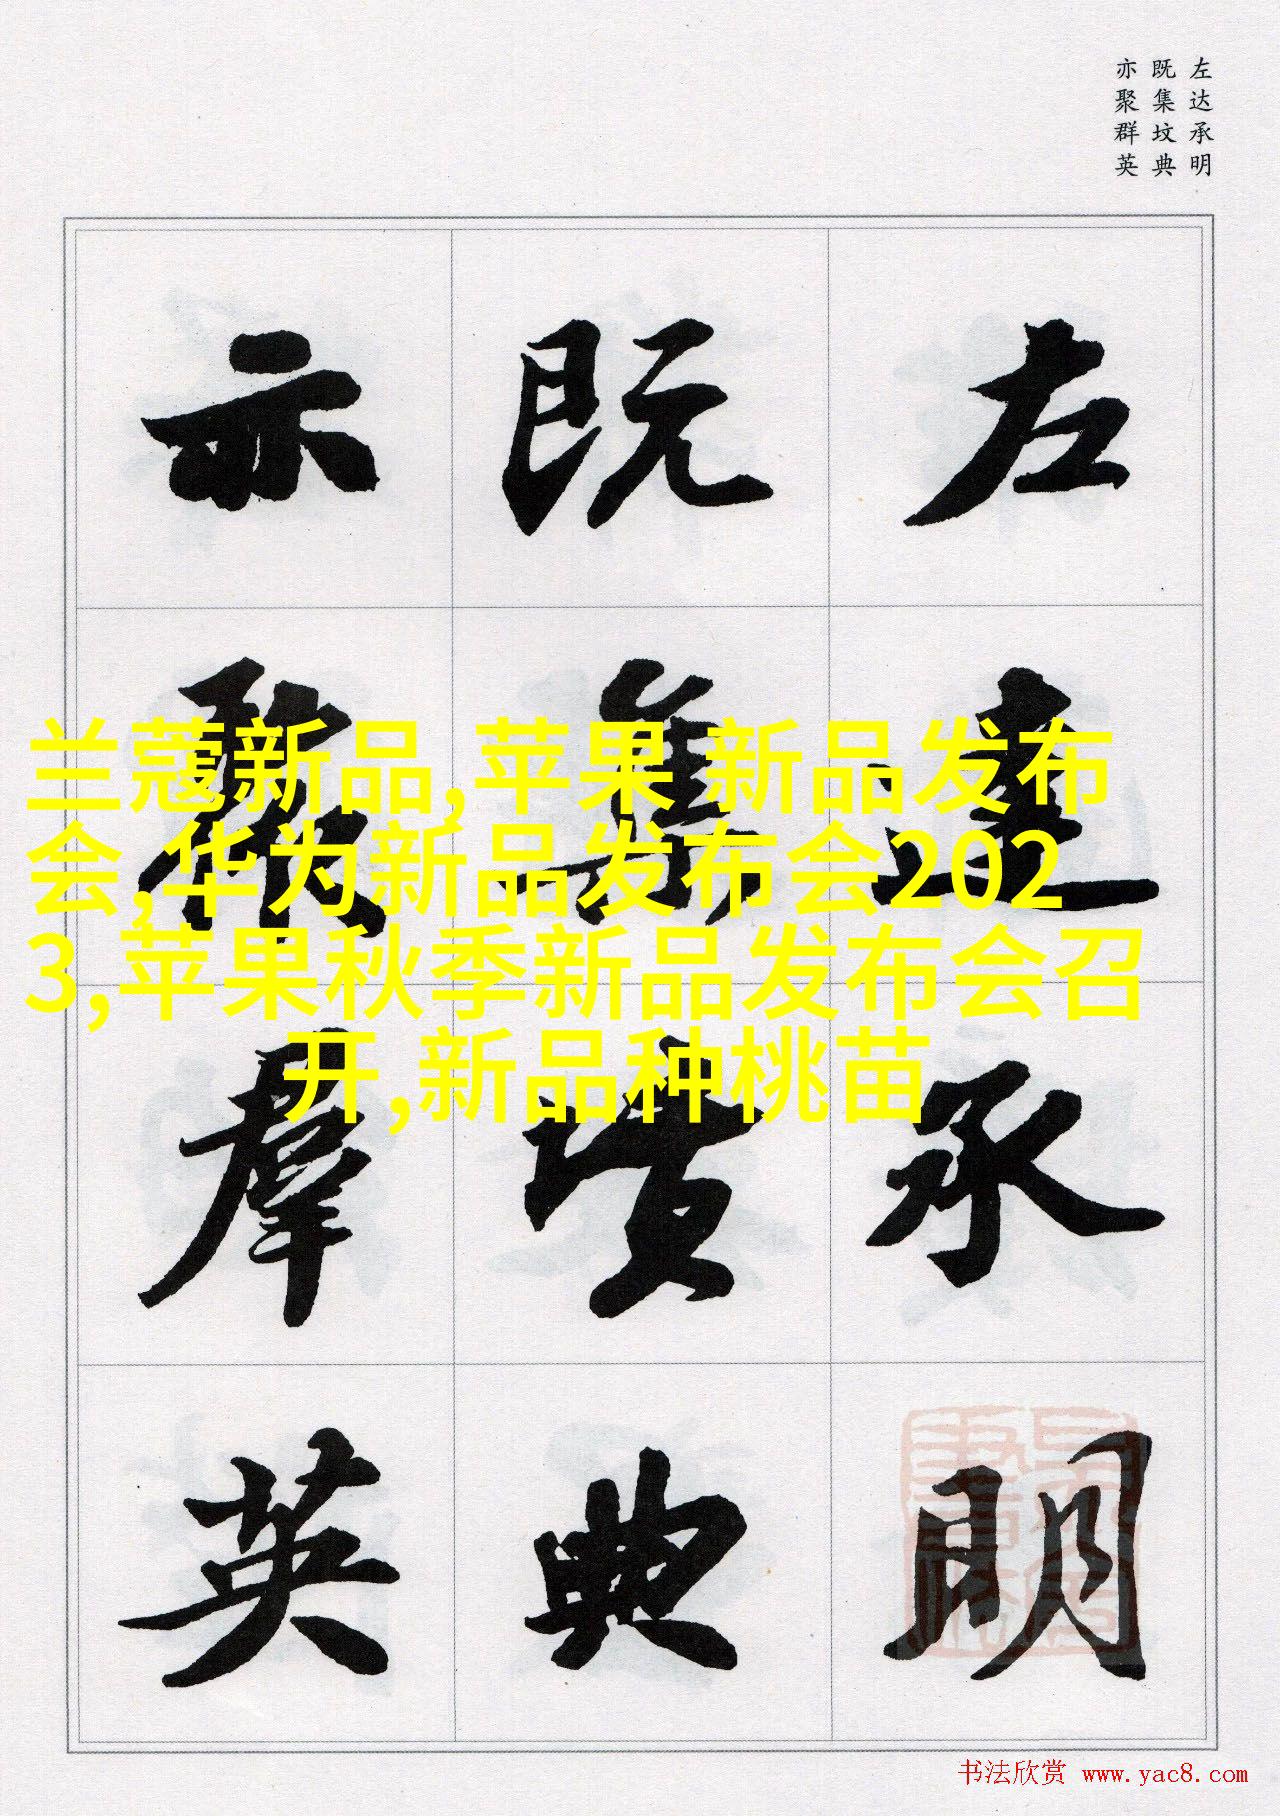 左达承明
既集坟典
亦聚群英
左達承明
既集墳典
亦聚羣英
兰蔻新品,苹果 新品发布
会,华为新品发布会202
3,苹果秋季新品发布会召
开,新品种桃苗
书法欣赏 www.yac8.com